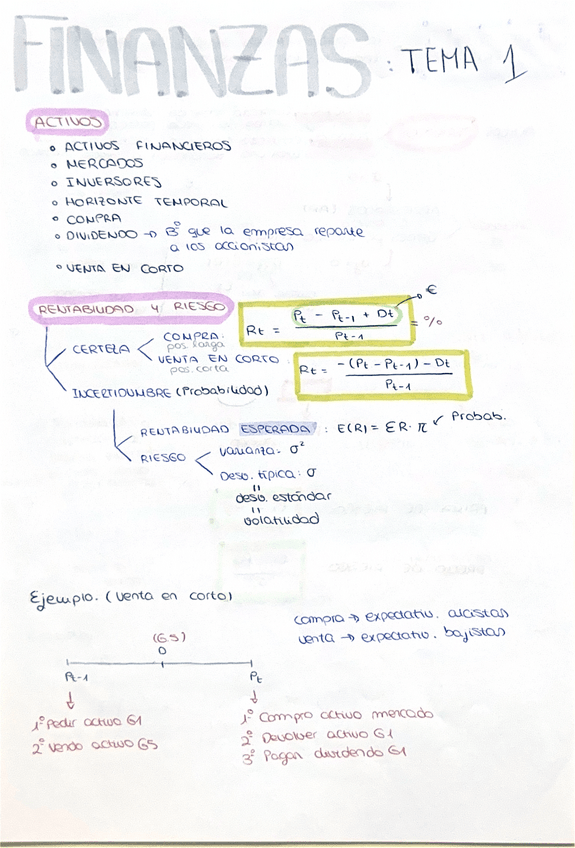 FINANZAS: TEMA 1
ACTIVOS
° ACTIVOS FINANCIEROS
° MERCADOS
° INVERSORES
° HORIZONTE TEMPORAL
° COMPRA
° DIVIDENDO → Bº que la empresa reparte
a los accionistas
° VENTA EN CORTO
RENTABILIDAD Y RIESGO
€
Rt = (Pt - Pt-1 + Dt) / Pt-1 = %
CERTEZA < COMPRA:
pos. larga
VENTA EN CORTO
pos. corta
Rt = (-(Pt - Pt-1) - Dt) / Pt-1
INCERTIDUMBRE (Probabilidad)
RENTABILIDAD ESPERADA : E(R) = ƐR· π ↙ Probab.
RIESGO < varianza: σ²
Desv. típica: σ
"
desv. estándar
"
volatilidad
Ejemplo. (venta en corto)
compra → expectativ. alcistas
venta → expectativ. bajistas
(G5)
D
Pt-1
Pt
1º Pedir activo G1
2º Vendo activo G5
1º Compro activo mercado
2º Devolver activo G1
3º Pagar dividendo G1